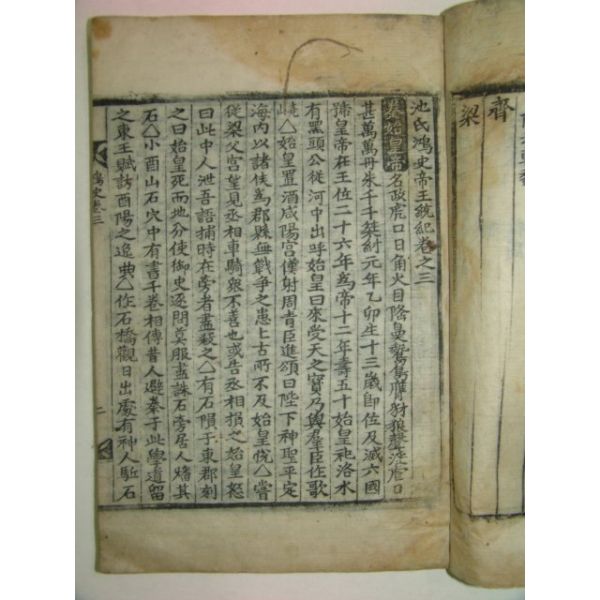 齊
梁
池氏鴻史帝王統紀卷之三
秦始皇帝 名政虎口日角火目隆鼻鷙鳥膺豺狼聲
甚萬萬丹朱千千桀紂元年乙卯生十三歲即位及滅六國
稱皇帝在王位二十六年爲帝十二年壽五十始皇祀洛水
有黑頭公從河中出呼始皇曰來受天之寶乃與羣臣作歌
△始皇置酒咸陽宮僕射周靑臣進頌曰陛下神聖平定
海內以諸侯爲郡縣無戰爭之患上古所不及始皇悅△嘗
從梁父宮望見丞相車騎衆不善也或告丞相損之始皇怒
曰此中人泄吾語捕時在旁者盡殺之△有石隕于東郡刻
之曰始皇死而地分使御史逐問莫服盡誅石旁居人燔其
石△小酉山石穴中有書千卷相傳昔人避秦于此學遺留
之東王賦訪酉陽之逸典△作石橋觀日出處有神人駈石
鴻史卷三
二